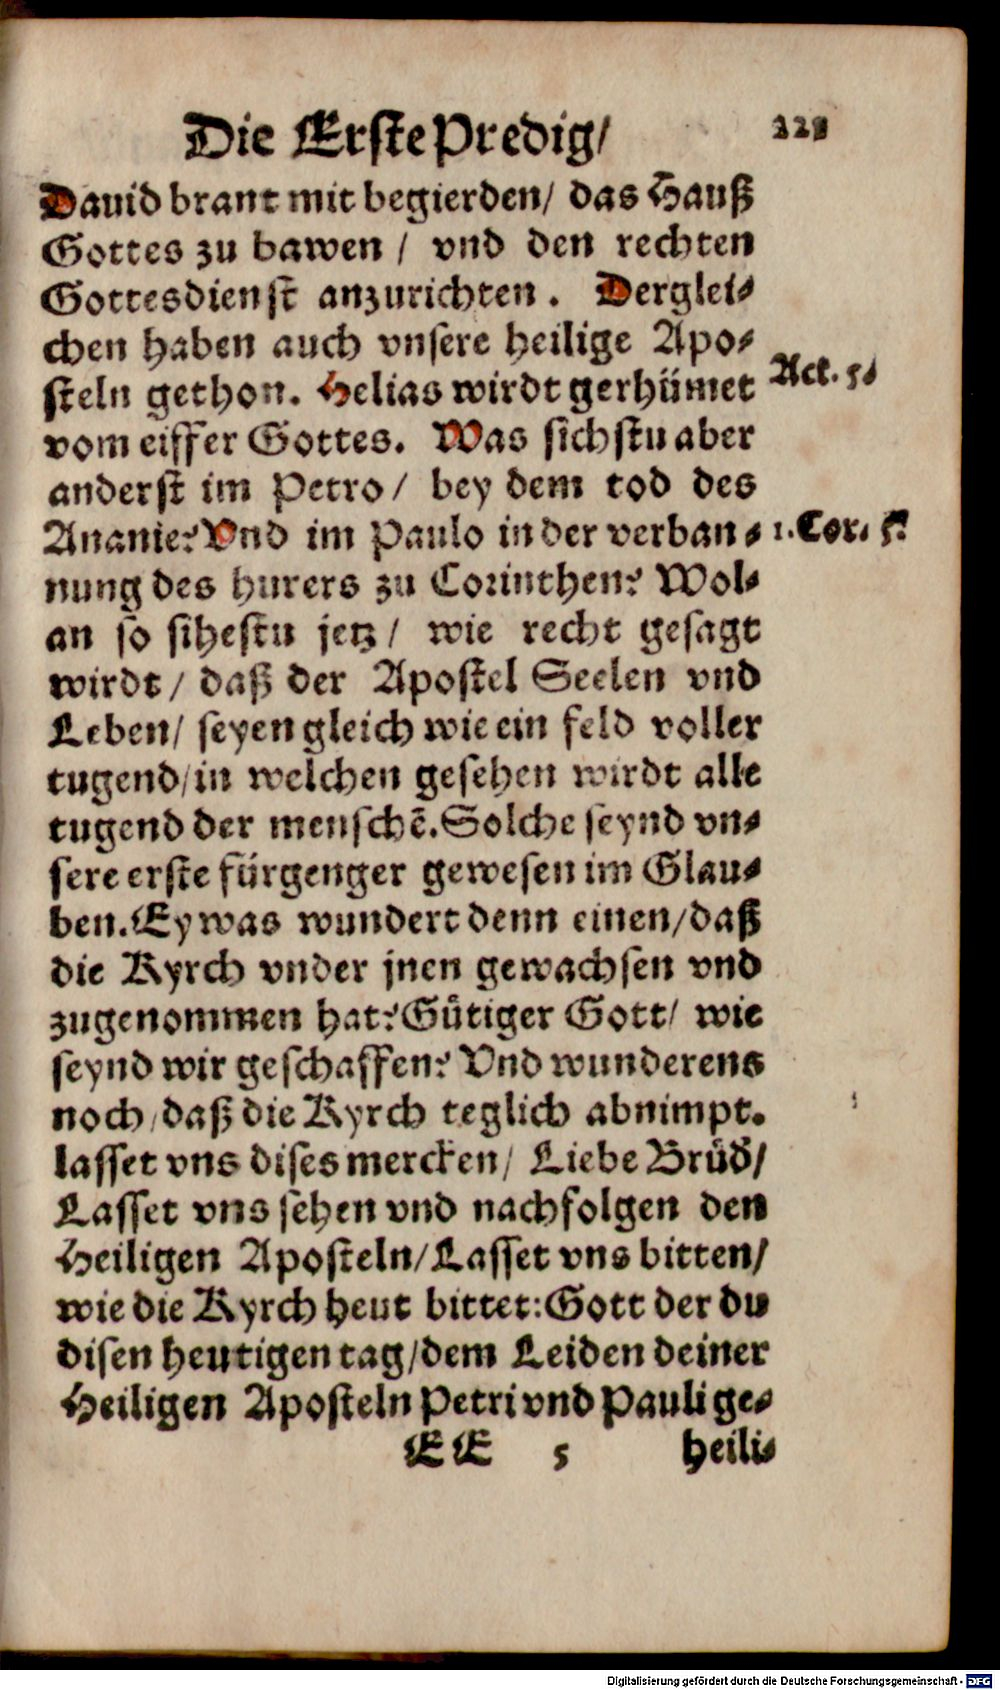 Die Erste Predig/
Dauid brant mit begierden/ das Hauß
Gottes zu bawen / vnd den rechten
Gottesdienst anzurichten. Derglei⸗
chen haben auch vnsere heilige Apo⸗
steln gethon. Helias wirdt gerhümet
Act. 5.
vom eiffer Gottes. Was sichstu aber
anderst im Petro/ bey dem tod des
Ananie? Vnd im Paulo in der verban⸗
1. Cor. 5.
nung des hurers zu Corinthen? Wol⸗
an so sihestu jetz/ wie recht gesagt
wirdt/ daß der Apostel Seelen vnd
Leben/ seyen gleich wie ein feld voller
tugend/in welchen gesehen wirdt alle
tugend der menschē. Solche seynd vn⸗
sere erste fürgenger gewesen im Glau⸗
ben. Ey was wundert denn einen/daß
die Kyrch vnder jnen gewachsen vnd
zugenommen hat? Gütiger Gott/ wie
seynd wir geschaffen? Vnd wunderens
noch/daß die Kyrch teglich abnimpt.
lasset vns dises mercken/ Liebe Brüd̕/
Lasset vns sehen vnd nachfolgen den
Heiligen Aposteln/Lasset vns bitten/
wie die Kyrch heut bittet: Gott der du
disen heutigen tag/dem Leiden deiner
Heiligen Aposteln Petri vnd Pauli ge⸗
EE 5 heili⸗
Digitalisierung gefördert durch die Deutsche Forschungsgemeinschaft - DFG